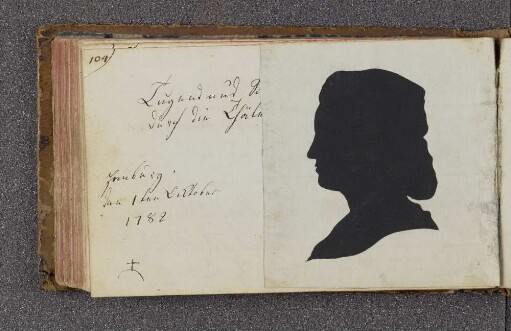 104
Tugend und
durch die
Homburg.
den 1ten October
1782